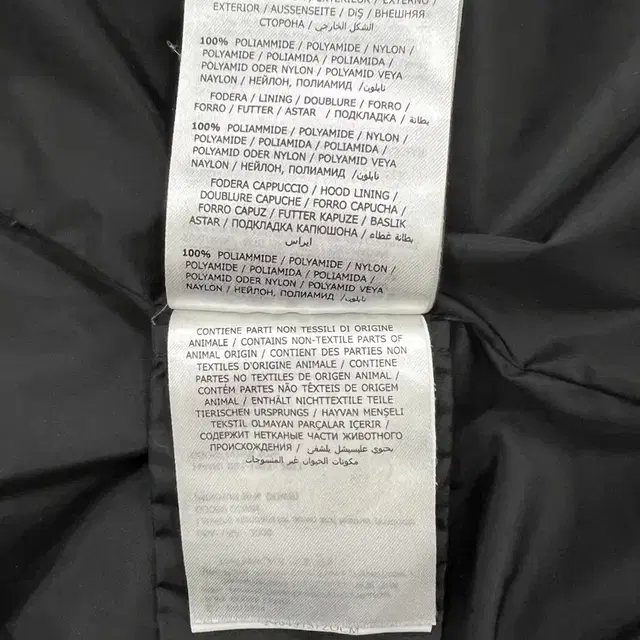 EXTERIOR / AUSSENSEITE / DIŞ / ВНЕШНЯЯ
СТОРОНА / الشكل الخارجي
100% POLIAMMIDE / POLYAMIDE / NYLON /
POLYAMIDE / POLIAMIDA / POLIAMIDA /
POLYAMID ODER NYLON / POLYAMID VEYA
NAYLON / НЕЙЛОН, ПОЛИАМИД /نايلون
FODERA / LINING / DOUBLURE / FORRO /
FORRO / FUTTER / ASTAR / ПОДКЛАДКА / بطانة
100% POLIAMMIDE / POLYAMIDE / NYLON /
POLYAMIDE / POLIAMIDA / POLIAMIDA /
POLYAMID ODER NYLON / POLYAMID VEYA
NAYLON / НЕЙЛОН, ПОЛИАМИД /نايلون
FODERA CAPPUCCIO / HOOD LINING /
DOUBLURE CAPUCHE / FORRO CAPUCHA /
FORRO CAPUZ / FUTTER KAPUZE / BASLIK
ASTAR / ПОДКЛАДКА КАПЮШОНА / بطانة غطاء
ايراس
100% POLIAMMIDE / POLYAMIDE / NYLON /
POLYAMIDE / POLIAMIDA / POLIAMIDA /
POLYAMID ODER NYLON / POLYAMID VEYA
NAYLON / НЕЙЛОН, ПОЛИАМИД /نايلون
CONTIENE PARTI NON TESSILI DI ORIGINE
ANIMALE / CONTAINS NON-TEXTILE PARTS OF
ANIMAL ORIGIN / CONTIENT DES PARTIES NON
TEXTILES D'ORIGINE ANIMALE / CONTIENE
PARTES NO TEXTILES DE ORIGEN ANIMAL /
CONTÉM PARTES NÃO TÊXTEIS DE ORIGEM
ANIMAL / ENTHÄLT NICHTTEXTILE TEILE
TIERISCHEN URSPRUNGS / HAYVAN MENŞELİ
TEKSTIL OLMAYAN PARÇALAR IÇERIR /
СОДЕРЖИТ НЕТКАНЫЕ ЧАСТИ ЖИВОТНОГО
ПРОИСХОЖДЕНИЯ / يحتوي
مكونات الحيوان غير المنسوجات